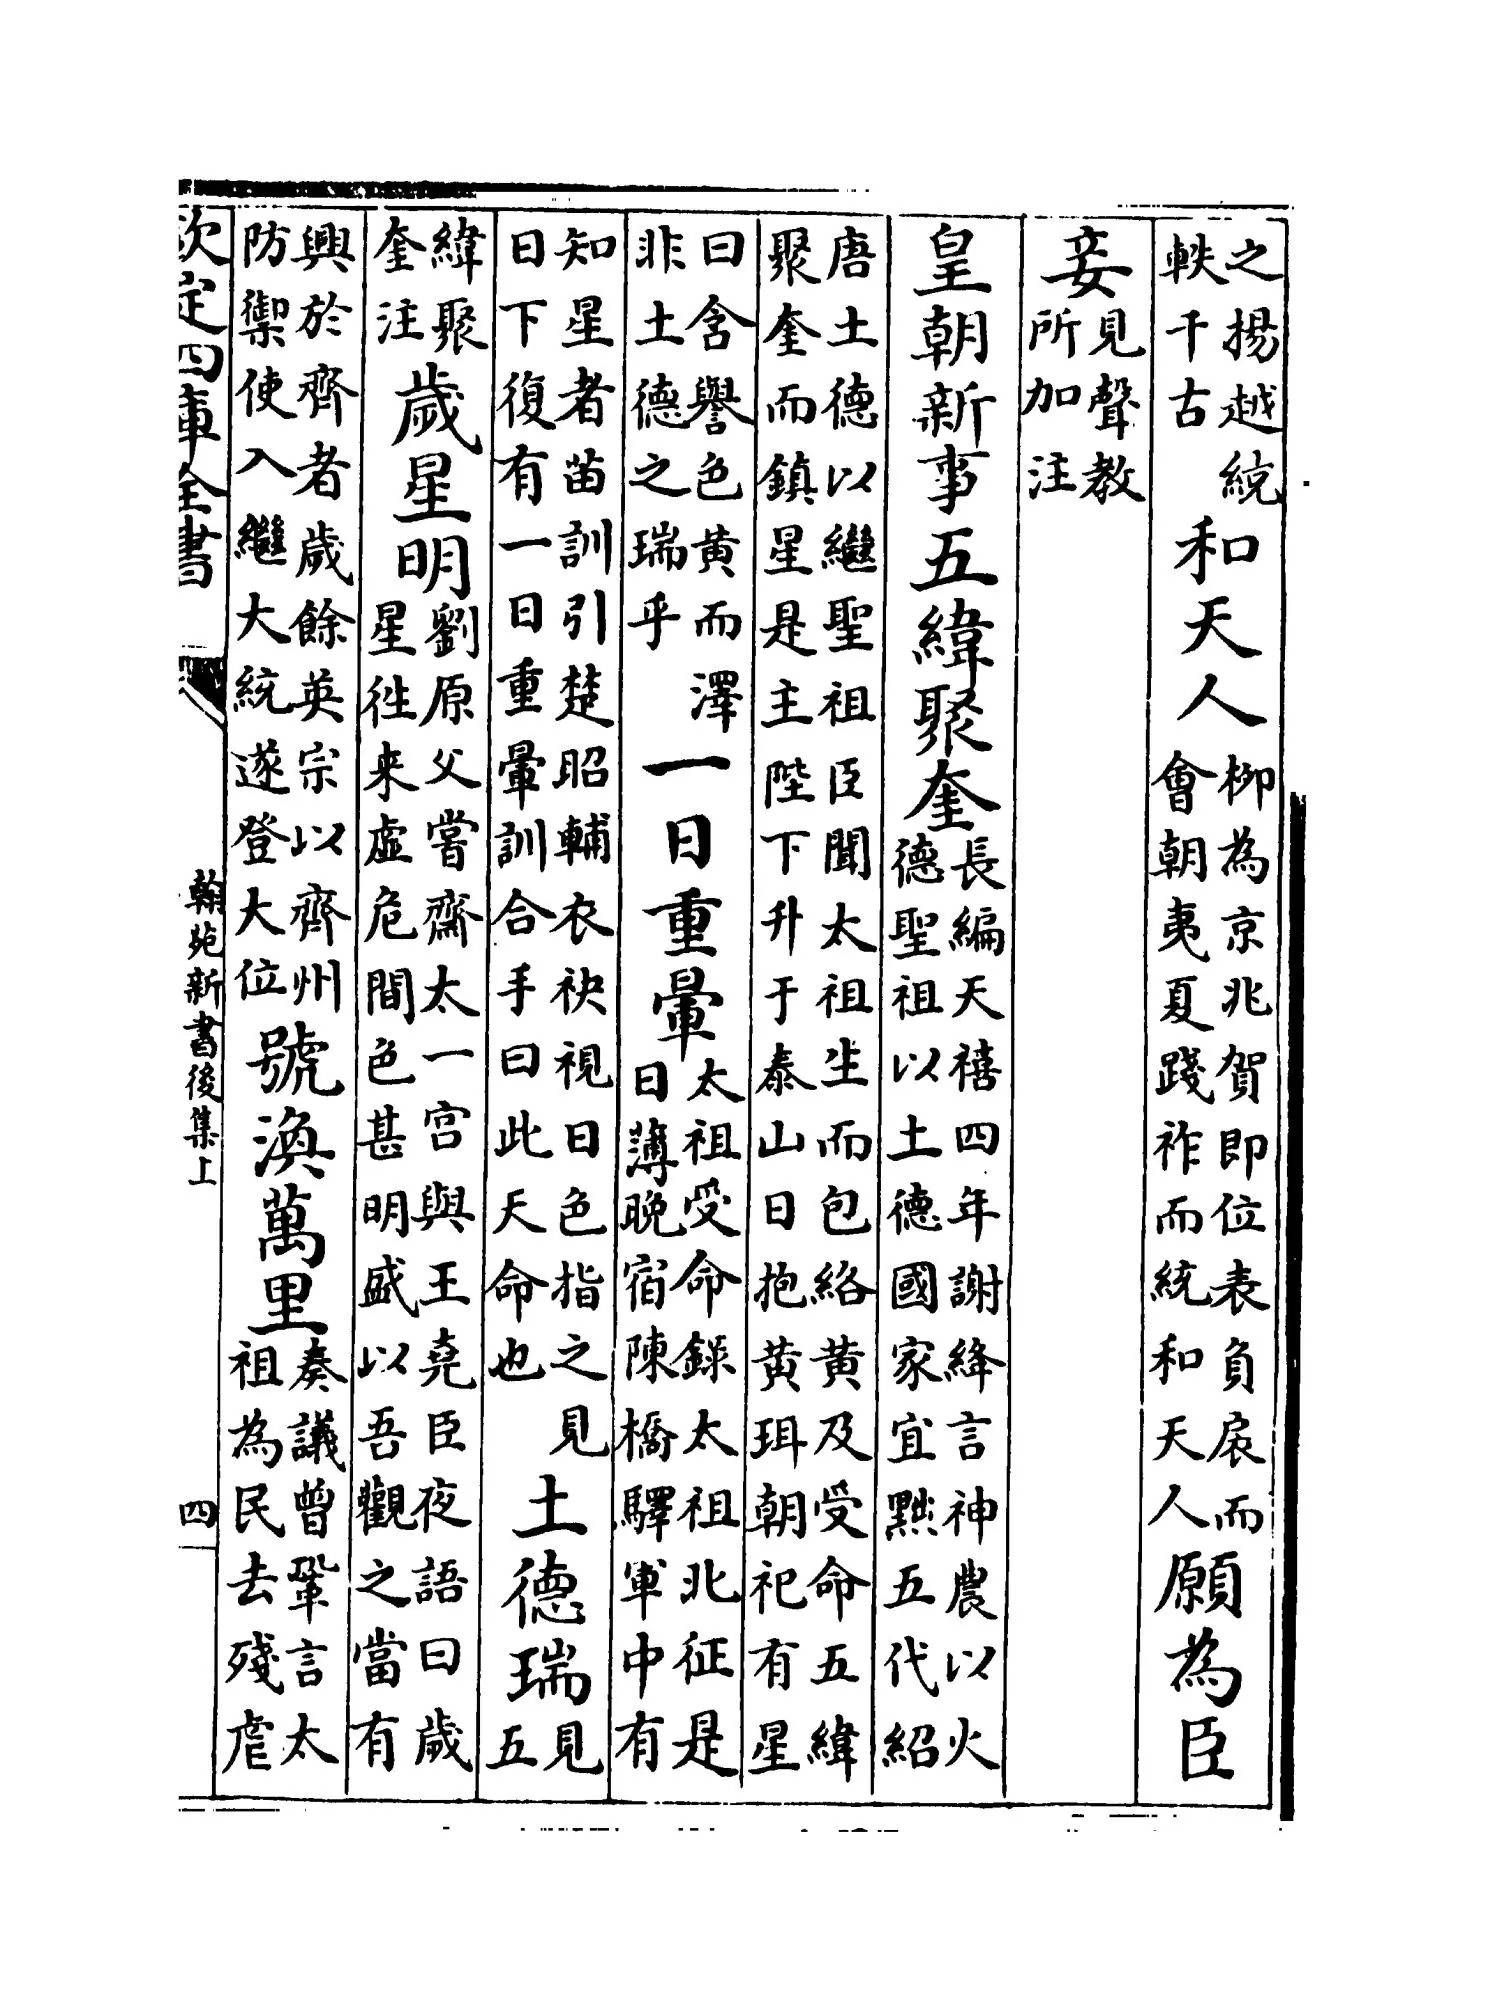 之揚越統
軼千古
和天人
柳為京兆賀即位表負扆而
會朝夷夏踐祚而統和天人
願為臣
妾
見聲教
所加注
皇朝新事五緯聚奎
長編天禧四年謝絳言神農以火
德聖祖以土德國家宜黜五代紹
唐土德以繼聖祖臣聞太祖生而包絡黄及受命五緯
聚奎而鎮星是主陛下升于泰山日抱黄珥朝祀有星
曰含譽色黄而澤
非土德之瑞乎
一日重暈
太祖受命録太祖北征是
日薄晚宿陳橋驛軍中有
知星者苗訓引楚昭輔衣袂視日色指之見
日下復有一日重暈訓合手曰此天命也
土德瑞
見
五
緯聚
奎注
歲星明
劉原父嘗齋太一宫與王堯臣夜語曰歲
星徃来虚危間色甚明盛以吾觀之當有
興於齊者歲餘英宗以齊州
防禦使入繼大統遂登大位
號渙萬里
奏議曾鞏言太
祖為民去殘虐
欽定四庫全書
翰苑新書後集上
四